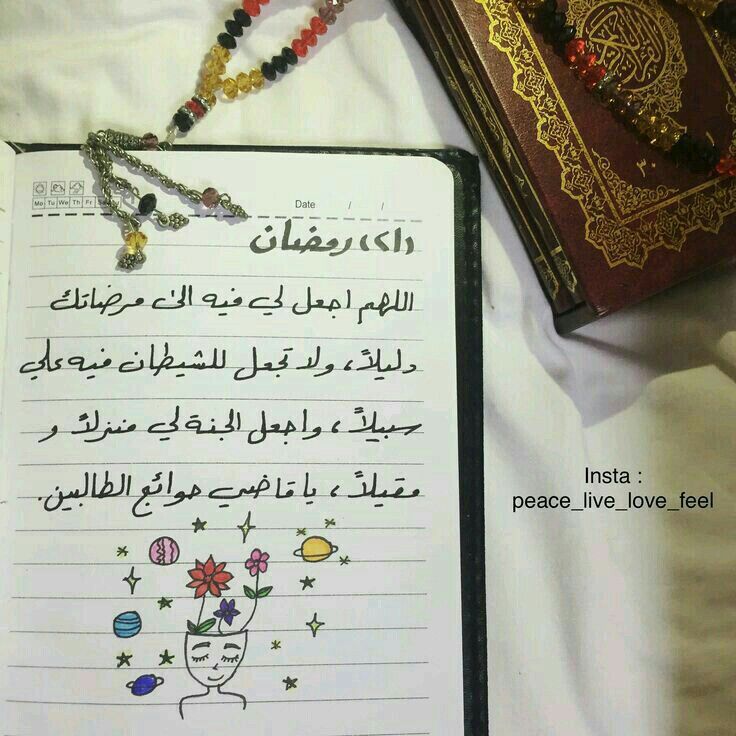 Mo Tu We Th Fr Sa Su
Date / /
(٢١) رمضان
اللهم اجعل لي فيه الى مرضاتك
دليلاً، ولا تجعل للشيطان فيه علي
سبيلاً، واجعل الجنة لي منزلاً و
مقيلاً، يا قاضي حوائج الطالبين.
Insta :
peace_live_love_feel